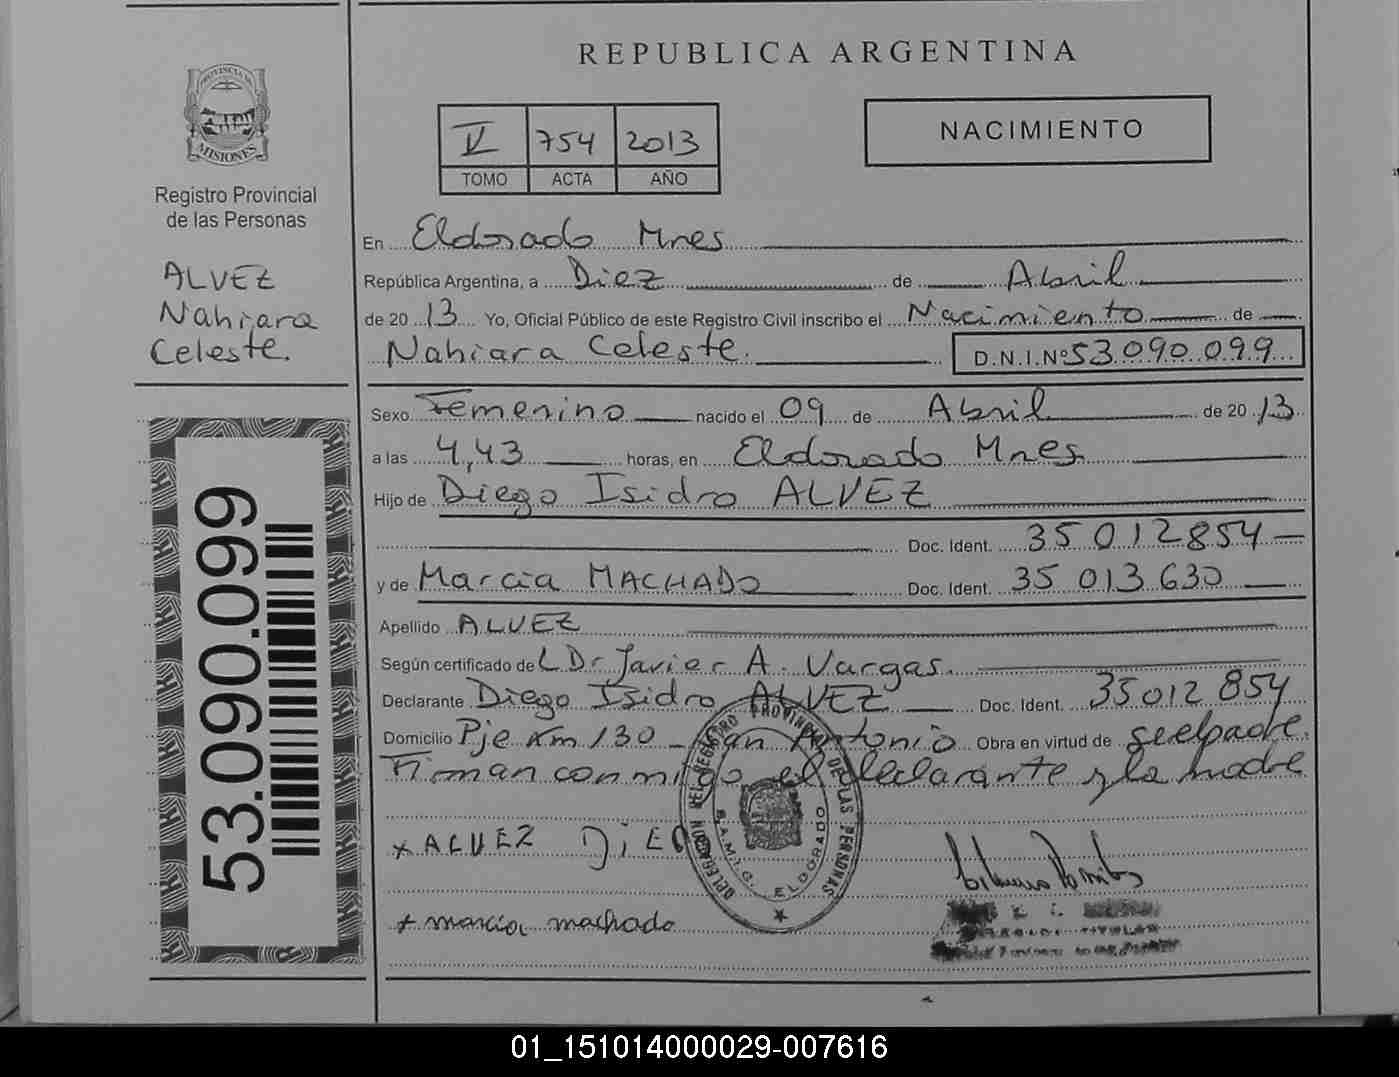 REPUBLICA ARGENTINA
PROVINCIA DE
MISIONES
Registro Provincial
de las Personas
ALVEZ
Nahiara
Celeste.
53.090.099
V 754 2013
TOMO ACTA AÑO
NACIMIENTO
En Eldorado Mnes
República Argentina, a Diez de Abril
de 20 13 Yo, Oficial Público de este Registro Civil inscribo el Nacimiento de
Nahiara Celeste. D.N.I.Nº 53.090.099
Sexo Femenino nacido el 09 de Abril de 20 13
a las 4,43 horas, en Eldorado Mnes
Hijo de Diego Isidro ALVEZ
Doc. Ident. 35 012854
y de Marcia MACHADO Doc. Ident. 35 013 630
Apellido ALVEZ
Según certificado de Dr Javier A. Vargas.
Declarante Diego Isidro ALVEZ Doc. Ident. 35012 854
Domicilio Pje Km 130 San Antonio Obra en virtud de ser el padre.
Firman conmigo el declarante y la madre
x ALVEZ DiEGO
x marcia machado
DELEGACION DEL REGISTRO PROVINCIAL DE LAS PERSONAS
ELDORADO
TITULAR
01_151014000029-007616